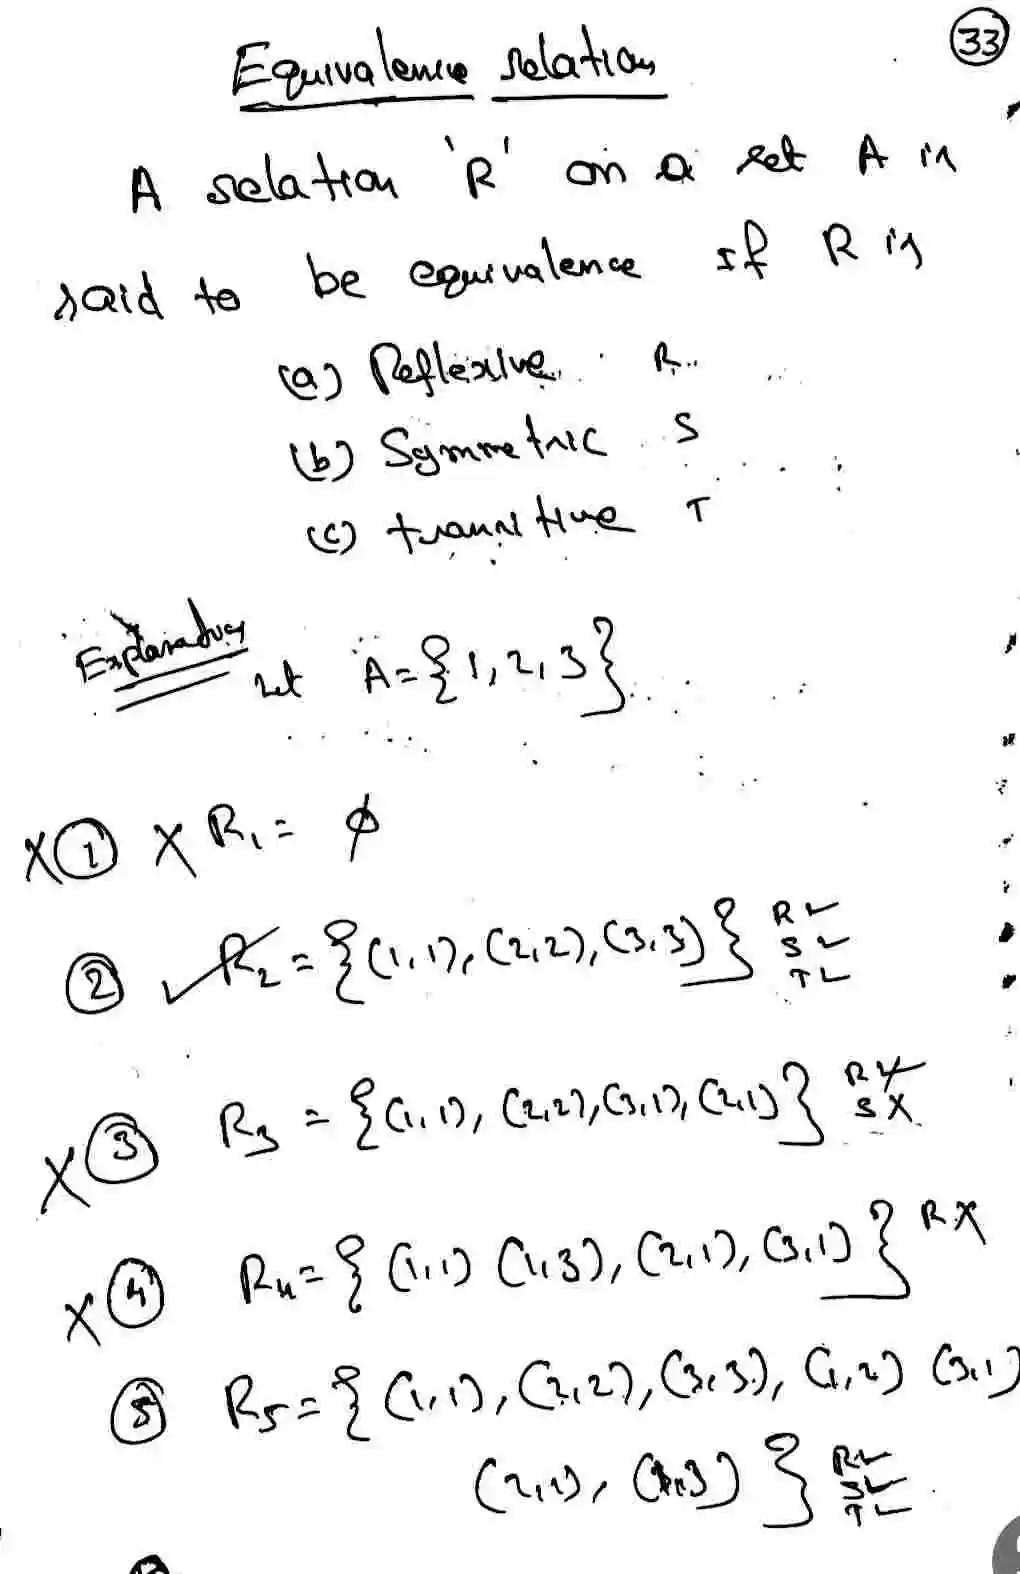 33
Equivalence relation
A relation 'R' on a set A is
said to be equivalence if R is
(a) Reflexive R
(b) Symmetric S
(c) transitive T
let A={1,2,3}
X ① X R₁ = φ
② ✓ R₂ = {(1,1),(2,2),(3,3)} R✓
S✓
T✓
X ③ R₃ = {(1,1), (2,2),(3,1),(2,1)} R
S X
X ④ R₄ = {(1,1) (1,3), (2,1), (3,1)} R X
⑤ R₅ = {(1,1), (2,2), (3,3), (1,2) (3,1)
(2,1), (1,3)} R✓
S✓
T✓